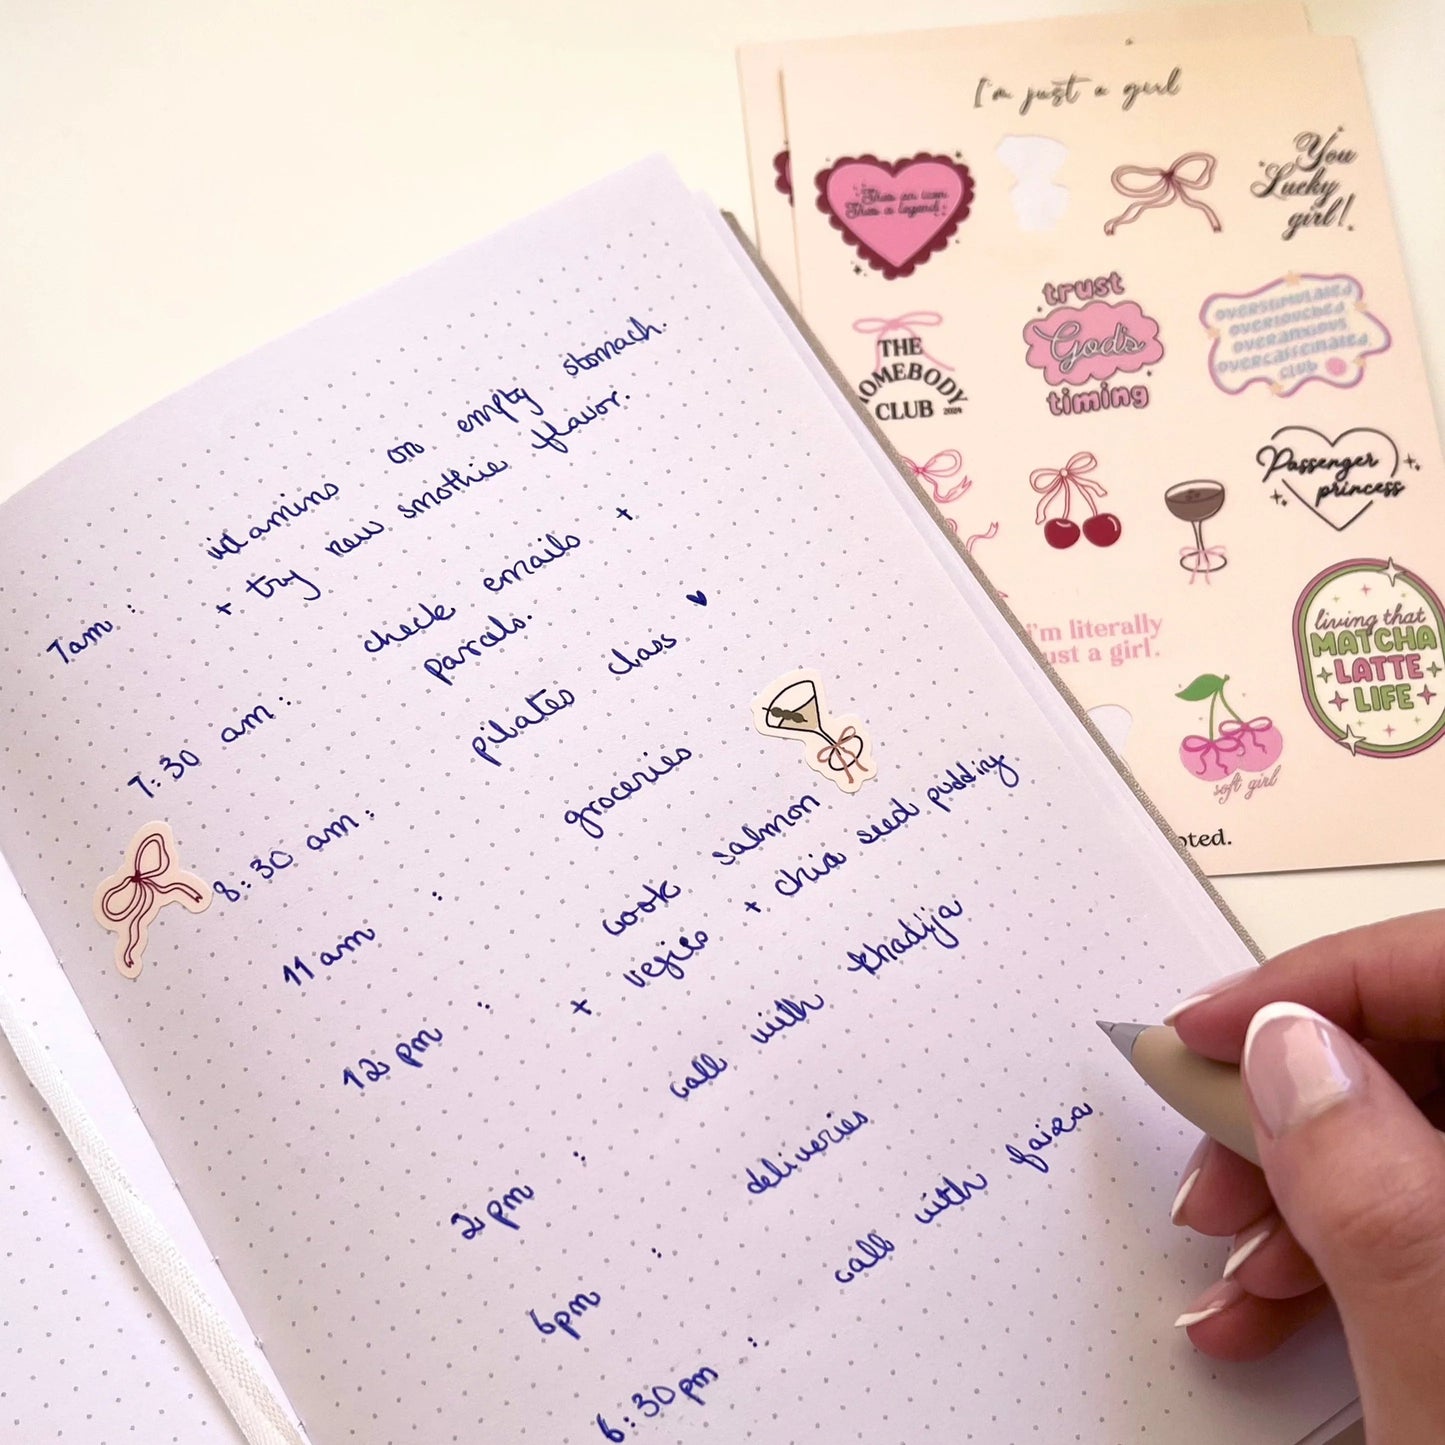 7am : vitamins on empty stomach.
+ try new smothie flavor.
7:30 am : check emails +
parcels.
8:30 am : pilates class ♥
11 am : groceries
12 pm : cook salmon
+ vegies + chia seed pudding.
2 pm : call with khadija
6pm : deliveries
6:30pm : call with faiza
I'm just a girl
She's an icon
She's a legend
You
Lucky
girl!
THE
HOMEBODY
CLUB 2024
trust
God's
timing
OVERSTIMULATED
OVERTOUCHED
OVERANXIOUS
OVERCAFFEINATED
CLUB
Passenger
princess
i'm literally
just a girl.
living that
MATCHA
LATTE
LIFE
soft girl
oted.